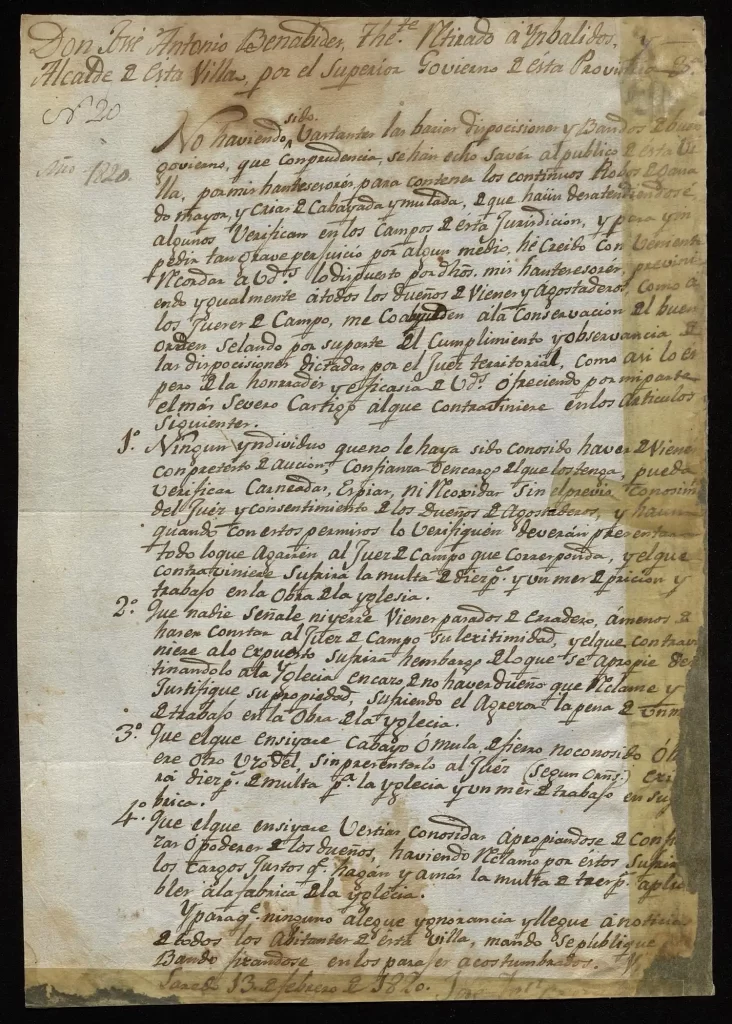 Don José Antonio Benabides, Thete. Retirado à Ynbalidos, y
Alcalde de Esta Villa, por el Superior Govierno de Esta Provincia &a.
No. 20
Año 1820.
sido
No haviendo vastantes las barias dispocisiones y Bandos de buen
govierno, que con prudencia, se hán echo savér al publico de esta Vi
lla, por mis hantesesores, para contener los continuos Robos de Gana
do mayor, y crias de Cabayada y mulada, de que haún desatendiendose
algunos Verifican en los Campos de ésta Jurisdicion, y para ym
pedir tan grave perjuicio por algun medio, hé Creido Conbeniente
Recordar a Vds. lo dispuesto por dhos. mis hantesesores, previni
endo ygualmente átodos los dueños de Vienes y Agostaderos, como á
los Jueses de Campo, me Coayuden ála Conservacion del buen
orden Selando por suparte el Cumplimiento y observancia de
las dispocisiones dictadas por el Juez territorial, como asi lo es
pero de la honrradés y eficasia de Vds. ofreciendo por miparte
el más Severo Castigo álque Contraviniere en los Articulos
Siguientes.
1o. Ningun yndividuo que no le haya sido Conosido haver de Viene
con pretesto de aucion, Confianza ô encargo del que los tenga, pueda
verificar Carneadas, Espiar, ni Recoxidas Sin el previo Conosim
del Juéz y consentimiento de los dueños de Agostaderos, y haun
quando con estos permisos lo Verifiquén deverán presentar
todo lo que Agarén al Juez de Campo que Corresponda, y el que
contraviniere Sufrira la multa de dies ps. y un mes de pricion y
trabajo en la Obra de la yglesia.
2o. Que nadie Señale ni yerre Vienes parados de Erradero, ámenos de
haser Constar al Juez de Campo su lexitimidad, y el que contravi
niere a lo expuesto Sufrira hembargo de lo que Se Apropie des
tinandolo a la Yglecia encaso de no haver dueño que Reclame y
Justifique su propiedad, sufriendo el Agresor la pena de Un m
de trabajo en la Obra de la yglecia.
3o. Que el que ensiyare Cabayo ó mula, de fierro no conosido ó hi
ere otro Uzo del, sin presentarlo al Juéz (segun Orns.) exi
rá dies ps. de multa pa. la yglecia y un mes de trabajo en su fa
brica.
4o. Que el que ensiyare Vestias conosidas apropiandose de Confi
zas ó poderes de los dueños, haviendo Reclamo por éstos Sufrira
los cargos Justos qe. hagan y amás la multa de tres ps. aplica
bles á la fabrica de la yglecia.
Y para qe. ninguno alegue ygnorancia y llegue á noticia
de todos los Abitantes de ésta Villa, mando Se publique
Bando fixandose en los parajes acostumbrados.
13 de febrero de 1820.